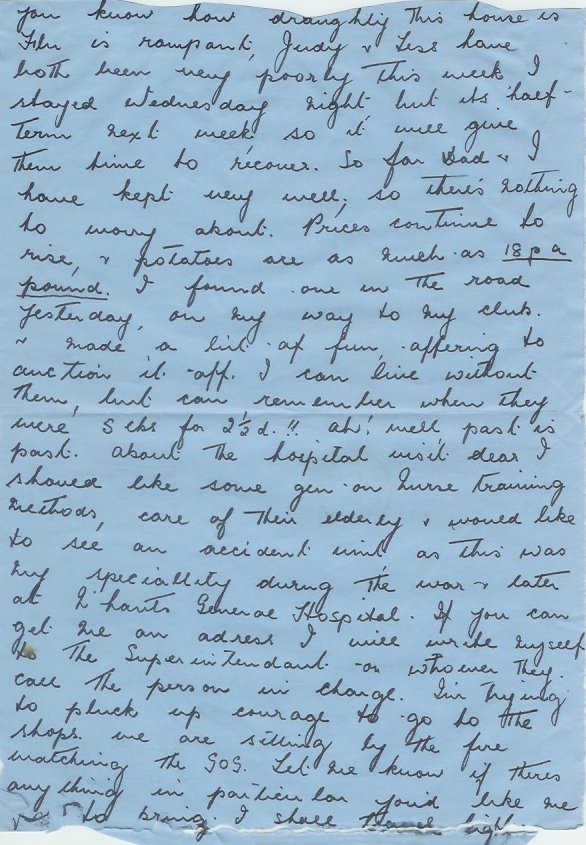 you know how draughty this house is
Flu is rampant, Judy & Less have
both been very poorly this week, I
stayed Wednesday night but its half-
Term next week so it will give
them time to recover. So far Dad & I
have kept very well, so there's nothing
to worry about. Prices continue to
rise, & potatoes are as much as 18p a
pound. I found one in the road
yesterday, on my way to my club.
& made a bit of fun, offering to
auction it off. I can live without
them, but can remember when they
were 5 lbs for 2½d.!! ah! well past is
past. about the hospital visit dear I
should like some gen on nurse training
methods, care of their elderly & would like
to see an accident unit as this was
my speciallity during the war & later
at N'hants General Hospital. If you can
get me an adress I will write myself
to the Superintendant or whoever they
call the person in charge. I'm trying
to pluck up courage to go to the
shops. we are sitting by the fire
watching the GOG. Let me know if theres
any thing in particular you'd like me
to bring. I shall travel light.